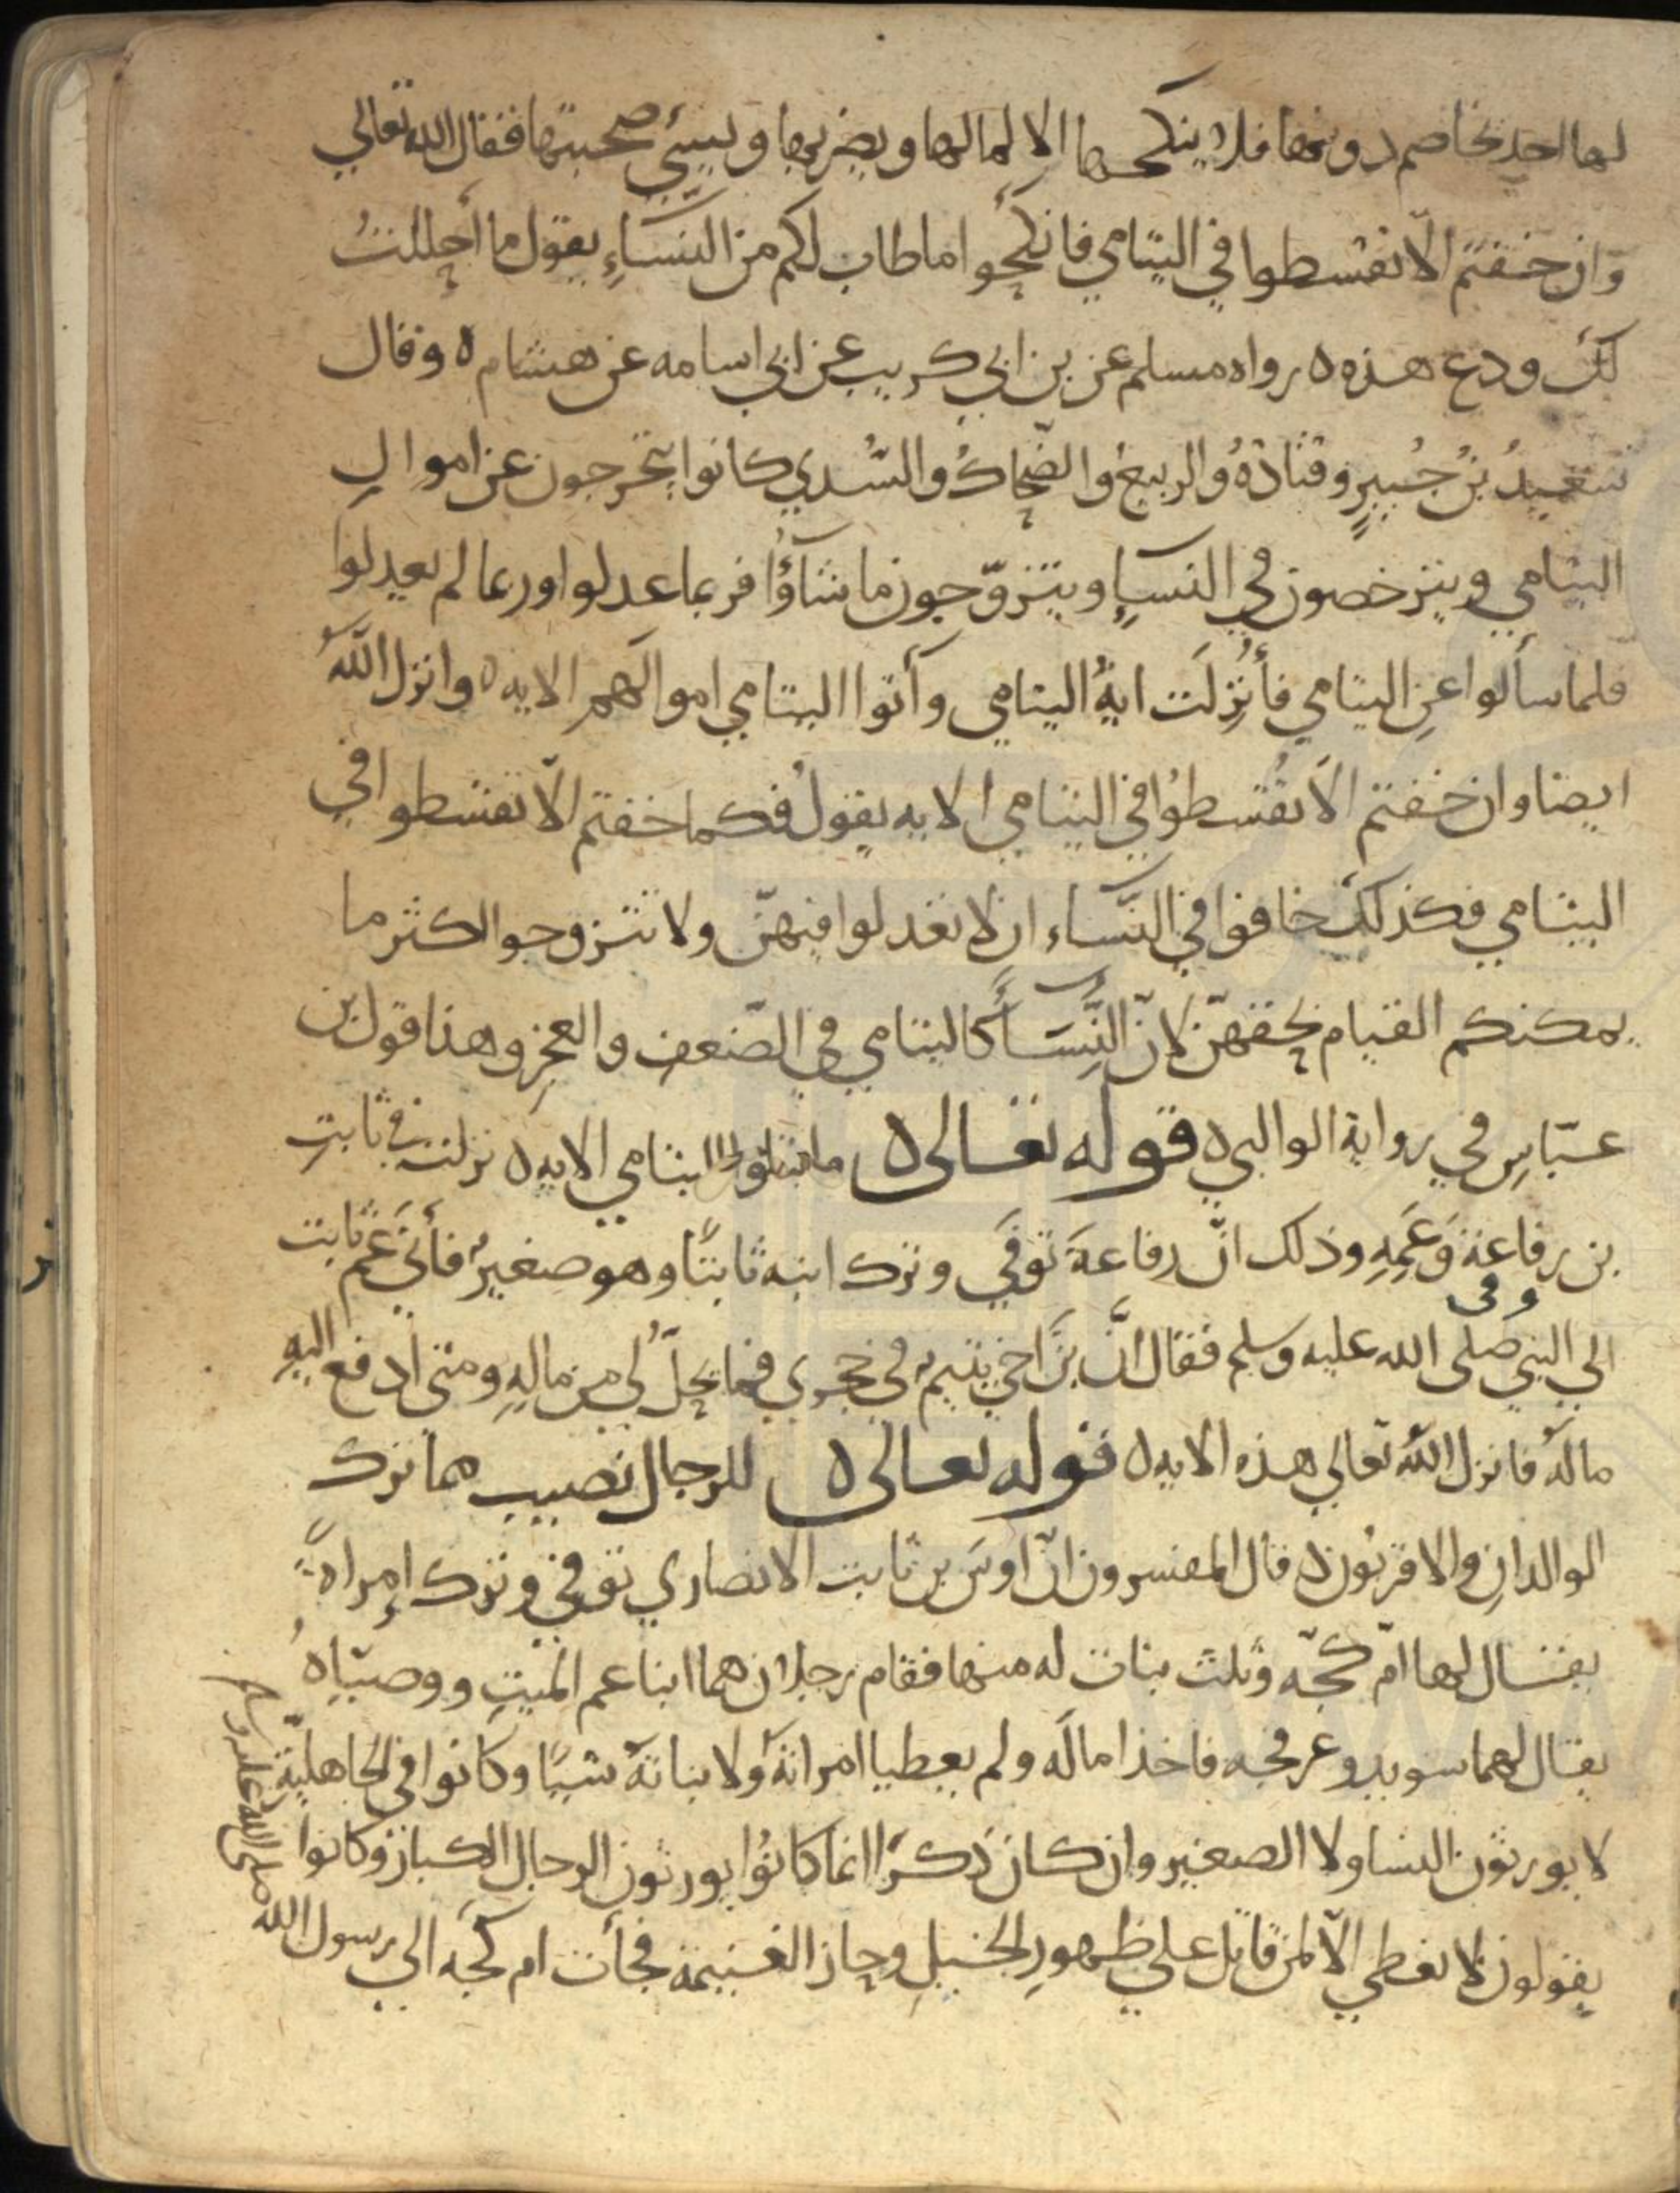 لها احد يخاصم دونها فلا ينكحها الا لمالها ويضربها ويسيئ صحبتها فقال الله تعالي
وان خفتم الّا تقسطوا في اليتامي فانكحُوا ما طاب لكم من النسَاءِ يقول ما احللتُ
لكَ ودع هذه ه رواه مسلم عن بن ابي كريب عن ابي اسامه عن هشام ه وقال
سَعيدُ بنُ جُبيرٍ وقتادَةُ والربيعُ والضّحاكُ والسُّدي كانوا يتحرجون عن اموالِ
اليتامي ويترخصون في النسآءِ ويتزوّجون ما شاؤُا فربما عدلوا وربما لم يعدلوا
فلما سالوا عنِ اليتامي فأُنزِلَت ايةُ اليتامي وآتوا اليتامي اموالَهم الايه ه وانزل اللّهُ
ايضا وان خفتم الّا تُقسطوُا في اليتامي الايه يقولُ فكما خفتم الّا تقسطوا في
اليتامي فكذلكَ خافوا في النّسَاء ان لا تعدلوا فيهنّ ولا تتزوجوا اكثر ما
يمكنكم القيام بحقهنّ لانّ النِّسَآءَ كاليتامي في الضّعفِ والعجزِ وهذا قول بن
عبّاسٍ في رواية الوالبي ه قوله تعالى ه وابتلوا اليتامي الايه ه نزلت في ثابتِ
بن رفاعة وَعَمِهِ وذلك انّ رفاعةَ تُوفَي وترك ابنه ثابتًا وهو صغيرٌ فأتَي عَم ثابت
وفى
الي النبي صلى الله عليه وسلم فقال انَّ بنَ اخي يتيم في حجري فما يحلّ لي من مالِهِ ومتى ادفع اليهِ
مالَهُ فانزل اللّهُ تعالي هذه الايه ه قوله تعالى ه للرجال نصيب مما ترك
الوالدانِ والاقربُون ه قال المفسرون انّ اوسَ بن ثابت الانصاري توفي وترك اِمراةً
يقال لها امّ كجّه وثلث بنات له منها فقام رجلان هما ابنا عم الميتِ ووصيّاهُ
يقال لهما سويد وعرفجه فاخذا مالَه ولم يعطيا امراتَهُ ولا بناتَهُ شيًا وكانوا في الجاهليّةِ
لا يورثون النسا ولا الصغير وان كان ذكرًا انما كانوُا يورثون الرجال الكبار وكانوا
يقولون لا نعطي الّا لمن قاتل علي ظهورِ الخيلِ وحاز الغنيمة فجأت ام كجّه الي رسول الله
صلى الله عليه وسلم